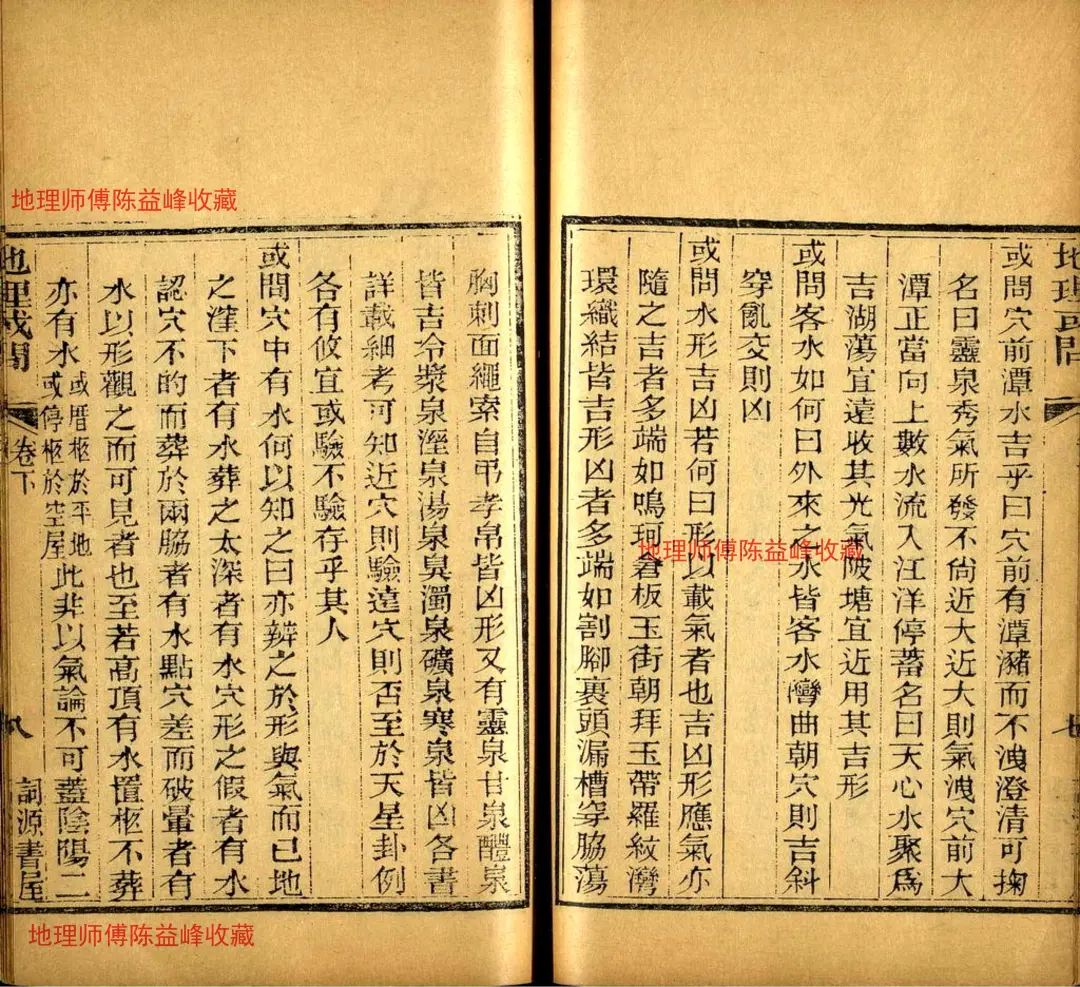 地理或問
七
或問穴前潭水吉乎曰穴前有潭瀦而不洩澄清可掬
名曰靈泉秀氣所發不尙近大近大則氣洩穴前大
潭正當向上數水流入江洋停蓄名曰天心水聚爲
吉湖蕩宜遠收其光氣陂塘宜近用其吉形
或問客水如何曰外來之水皆客水彎曲朝穴則吉斜
穿亂交則凶
或問水形吉凶若何曰形以載氣者也吉凶形應氣亦
隨之吉者多端如鳴珂倉板玉街朝拜玉帶羅紋灣
環織結皆吉形凶者多端如割腳裹頭漏槽穿脇蕩
胸刺面繩索自弔孝帛皆凶形又有靈泉甘泉醴泉
皆吉冷漿泉溼泉湯泉臭濁泉礦泉寒泉皆凶各書
詳載細考可知近穴則驗遠穴則否至於天星卦例
各有攸宜或驗不驗存乎其人
或問穴中有水何以知之曰亦辨之於形與氣而已地
之漥下者有水葬之太深者有水穴形之假者有水
認穴不的而葬於兩脇者有水點穴差而破暈者有
水以形觀之而可見者也至若高頂有水置柩不葬
亦有水或厝柩於平地
或停柩於空屋此非以氣論不可蓋陰陽二
地理或問
卷下
八
詞源書屋
地理师傅陈益峰收藏
地理师傅陈益峰收藏
地理师傅陈益峰收藏